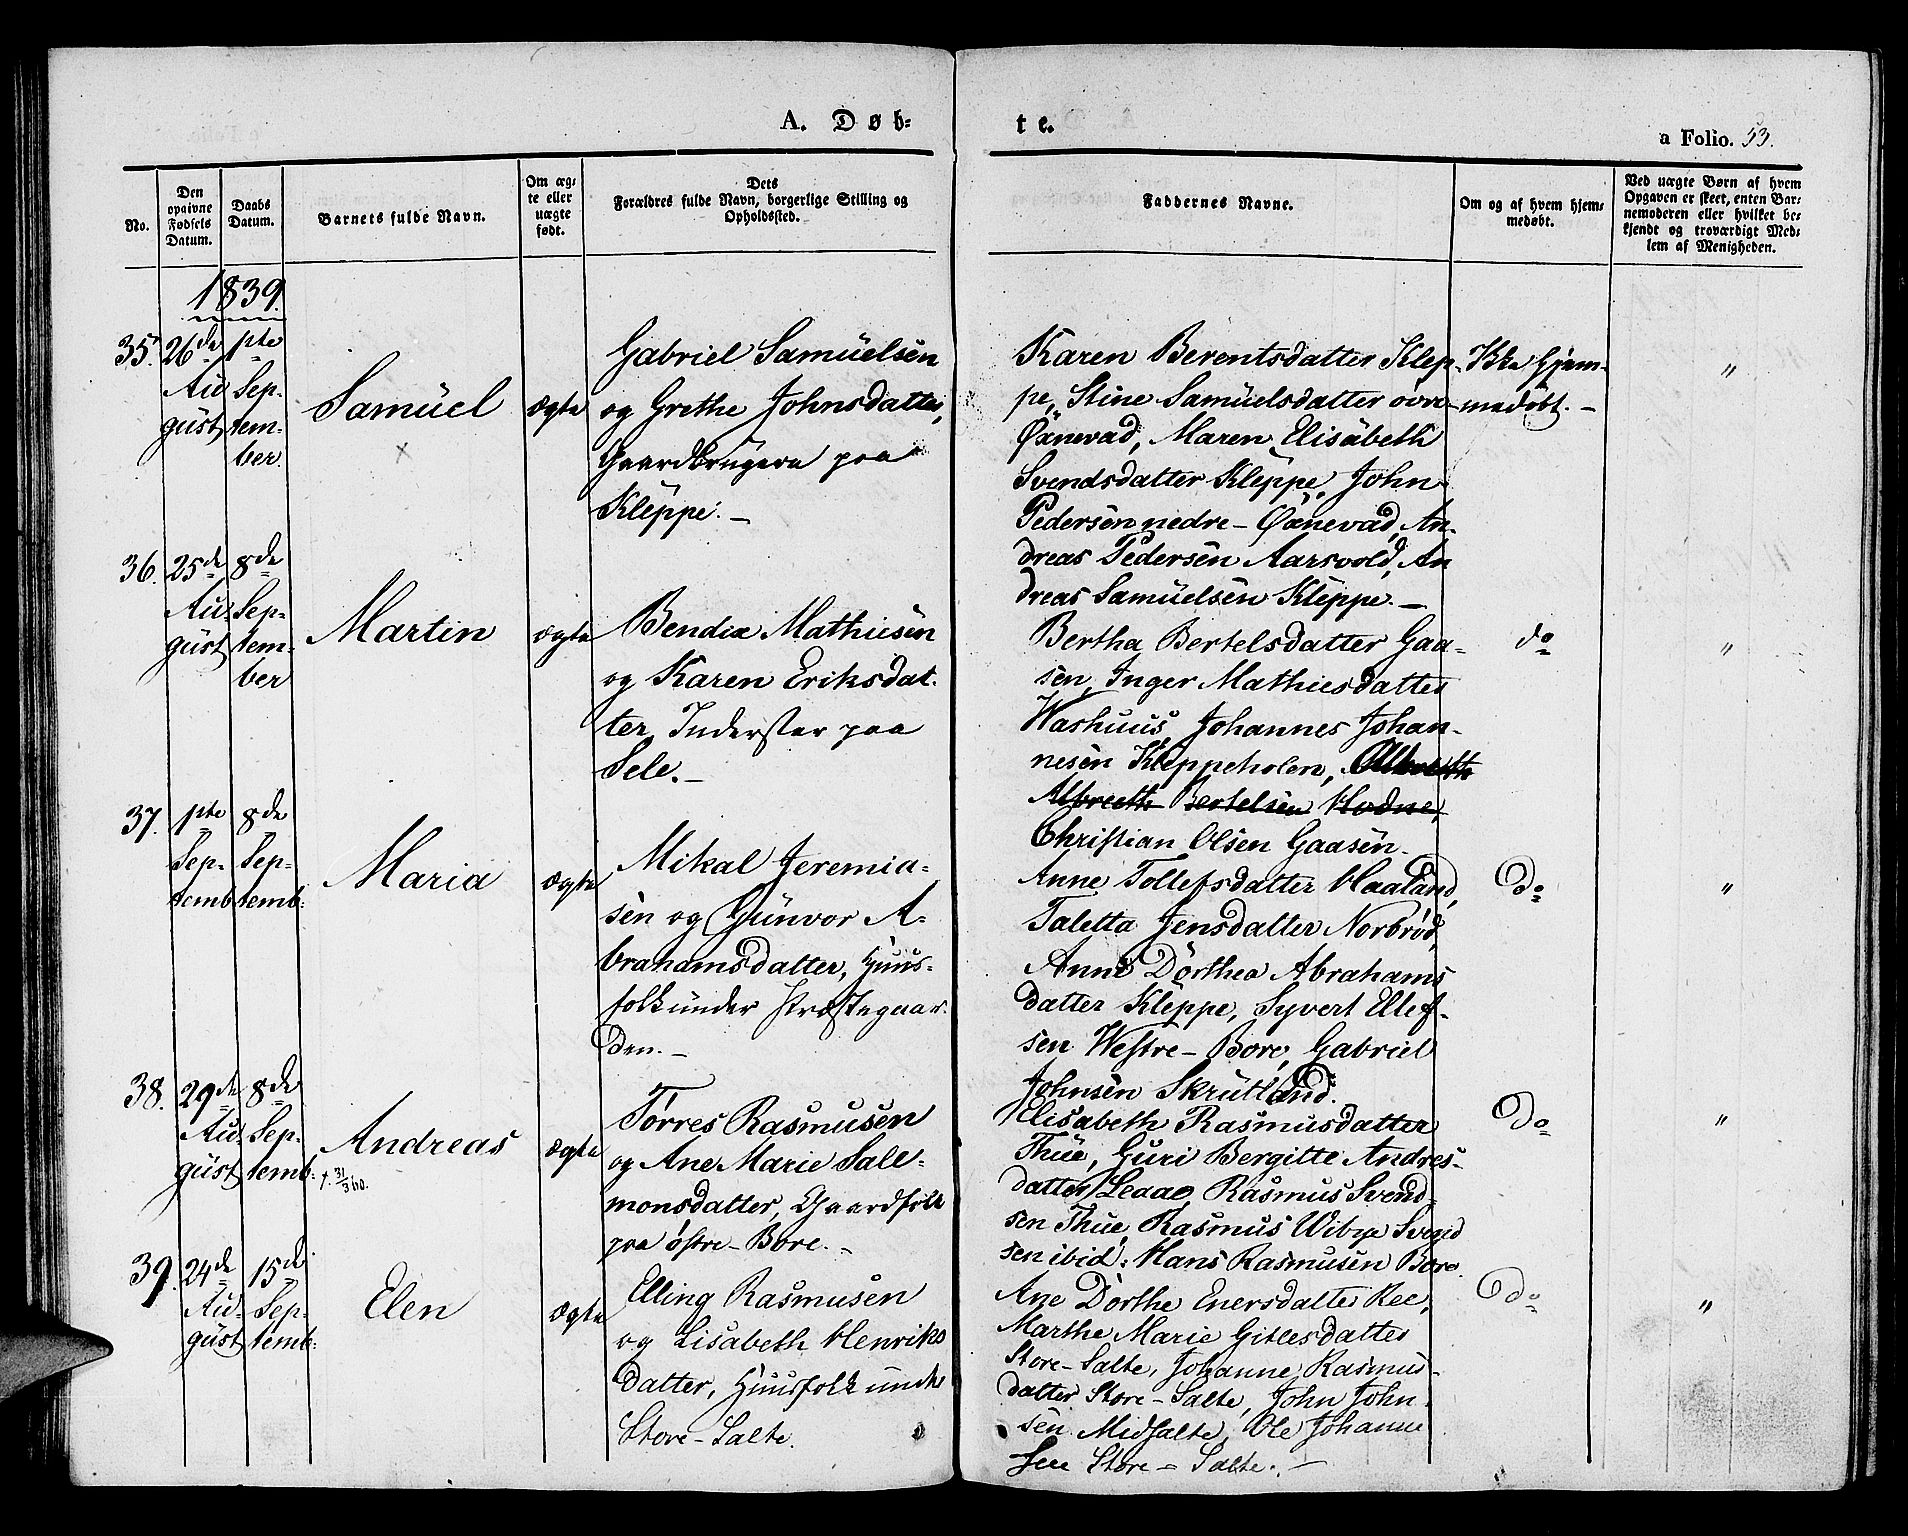 A. Døb-
te.
a Folio. 53.
No.
Den
opgivne
Fødsels
Datum.
Daabs
Datum.
Barnets fulde Navn.
Om æg-
te eller
uægte
født.
Dets
Forældres fulde Navn, borgerlige Stilling og
Opholdssted.
Faddernes Navne.
Om og af hvem hjem-
medøbt.
Ved uægte Børn af hvem
Opgaven er skeet, enten Bar-
nemoderen eller hvilket be-
kjendt og troværdigt Med-
lem af Menigheden.
1839.
35.
26de
Au-
gust
1ste
Sep-
tem-
ber.
Samuel
ægte
Gabriel Samuelsen
og Grethe Johnsdatter,
Gaardbrugere paa
Kleppe. –
Karen Berentsdatter Klep-
pe, Stine Samuelsdatter øvre-
Øxnevad, Maren Elisabeth
Svendsdatter Kleppe, John
Pedersen nedre-Øxnevad, An-
dreas Pedersen Aarsvold, An
dreas Samuelsen Kleppe. –
Ikke hjem-
medøbt. –
"
36.
25de
Au-
gust
8de
Sep-
tem-
ber
Martin
ægte
Bendix Mathiesen
og Karen Eriksdat-
ter, Inderster paa
Sele. –
Bertha Bertelsdatter Gaa-
sen, Inger Mathiesdatter
Washuus, Johannes Johan-
nesen Kleppeholen,
Albrecth Bertelsen Hodne,
Christian Olsen Gaasen.
do
"
37.
1ste
Sep-
temb
8de
Sep-
temb:
Maria
ægte
Mikal Jeremia-
sen og Gunvor A-
brahamsdatter, Huus-
folk under Præstegaar-
den. –
Anne Tollefsdatter Haaland,
Taletta Jensdatter Norbrød,
Anne Dorthea Abrahams
datter Kleppe, Syvert Ellef-
sen Westre-Bore, Gabriel
Johnsen Skrutland.
Do
"
38.
29de
Au-
gust
8de
Sep-
temb:
Andreas
†. 31/3 60.
ægte
Tørres Rasmusen
og Ane Marie Sale-
monsdatter, Gaardfolk
paa østre-Bore. –
Elisabeth Rasmusdatter
Thue, Guri Bergitte Andres-
datter Leaae, Rasmus Svend-
sen Thue, Rasmus Wibye Svend
sen ibid: Hans Rasmusen Bore.
Do
"
39.
24de
Au-
gust
15de
Sep-
temb:
Elen
ægte
Elling Rasmusen
og Lisabeth Henriks
datter, Huusfolk under
Store-Salte.
Ane Dorthe Enersdatter Ree,
Marthe Marie Gitlesdatter
Store-Salte, Johanne Rasmus-
datter Store-Salte, John John-
sen Midsalte, Ole Johanne
sen Store-Salte. –
Do
"